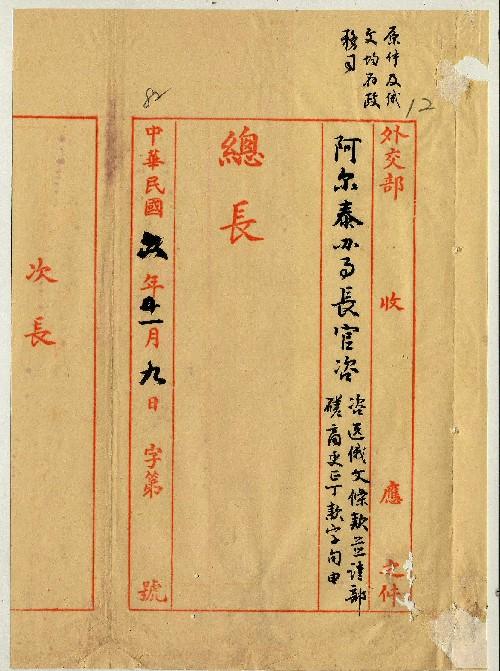 原件及俄
文均存政
務司
12
外交部收應之件
阿尔泰办事長官咨
咨送俄文條款並請部
磋商更正丁款字句由
總長
82
中華民國六年十一月九日 字第 號
次長